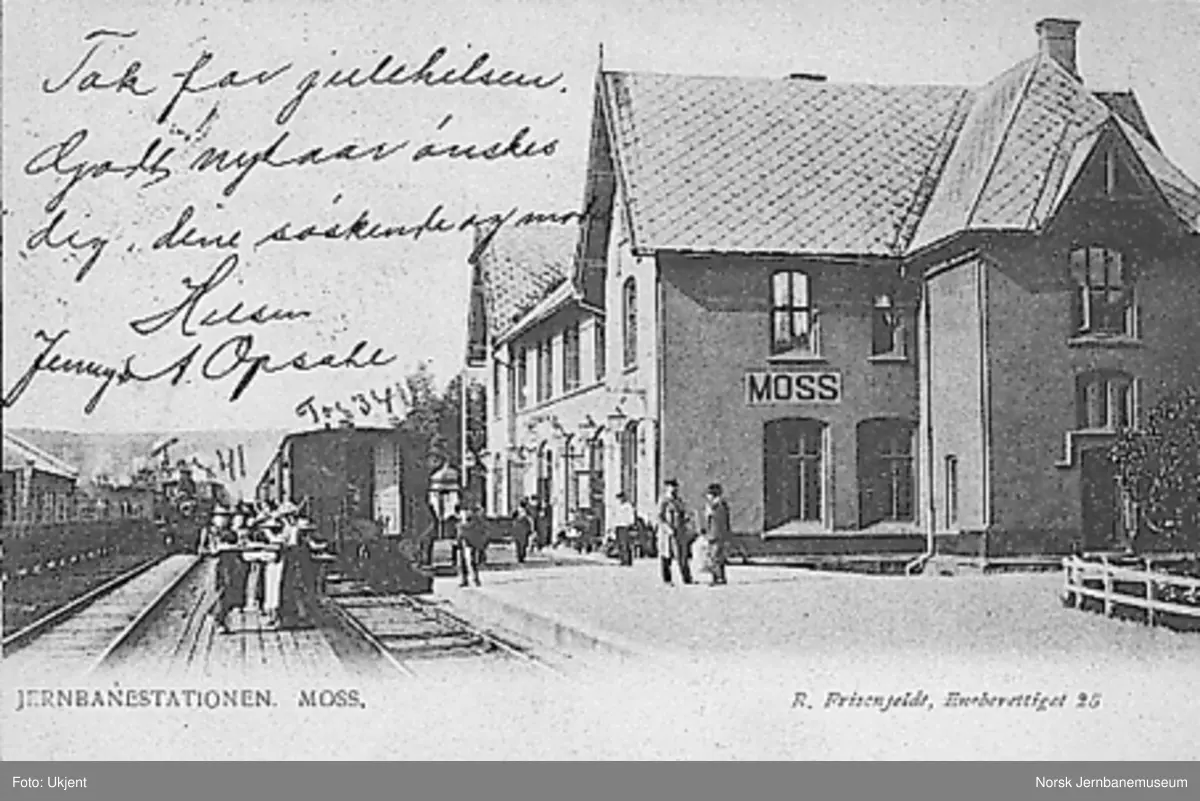 Tak for julehilsen.
Godt nytaar ønskes
dig, dine søskende og mor
Hilsen
Jenny A. Opsahl
Tog 341
41
MOSS
JERNBANESTATIONEN. MOSS.
R. Frisenfeldt, Eneberettiget 25
Foto: Ukjent
Norsk Jernbanemuseum